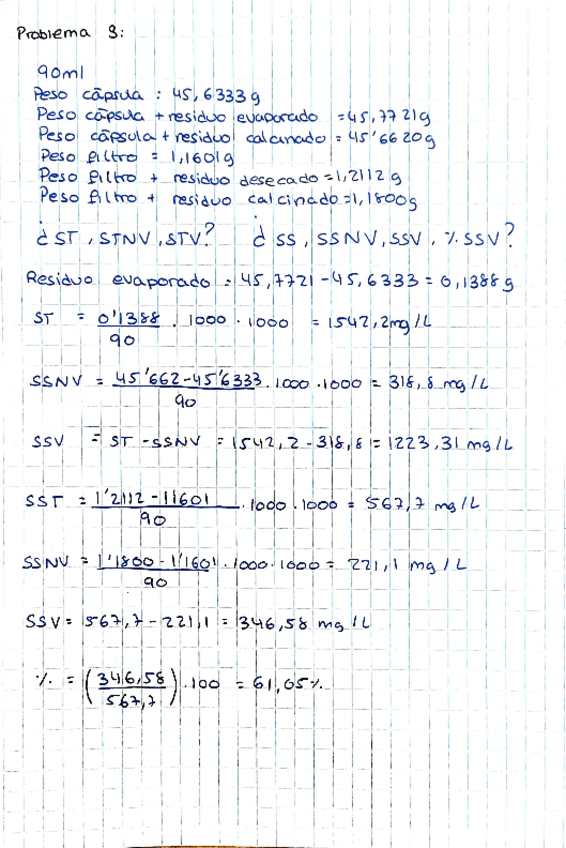 Problema 3:
90ml
Peso cāpsula : 45,6333g
Peso cāpsula + residuo evaporado = 45,7721g
Peso cāpsula + residuo calcinado = 45'6620g
Peso filtro = 1,1601g
Peso filtro + residuo desecado = 1,2112g
Peso filtro + residuo calcinado = 1,1800g
¿ST, STNV, STV? ¿SS, SSNV, SSV, %SSV?
Residuo evaporado = 45,7721 - 45,6333 = 0,1388g
ST = 0'1388 / 90 . 1000 . 1000 = 1542,2mg/L
SSNV = 45'662 - 45'6333 / 90 . 1000 . 1000 = 318,8 mg/L
SSV = ST - SSNV = 1542,2 - 318,8 = 1223,31 mg/L
SST = 1'2112 - 1'1601 / 90 . 1000 . 1000 = 567,7 mg/L
SSNV = 1'1800 - 1'1601 / 90 . 1000 . 1000 = 221,1 mg/L
SSV = 567,7 - 221,1 = 346,58 mg/L
% = (346,58 / 567,7) . 100 = 61,05%